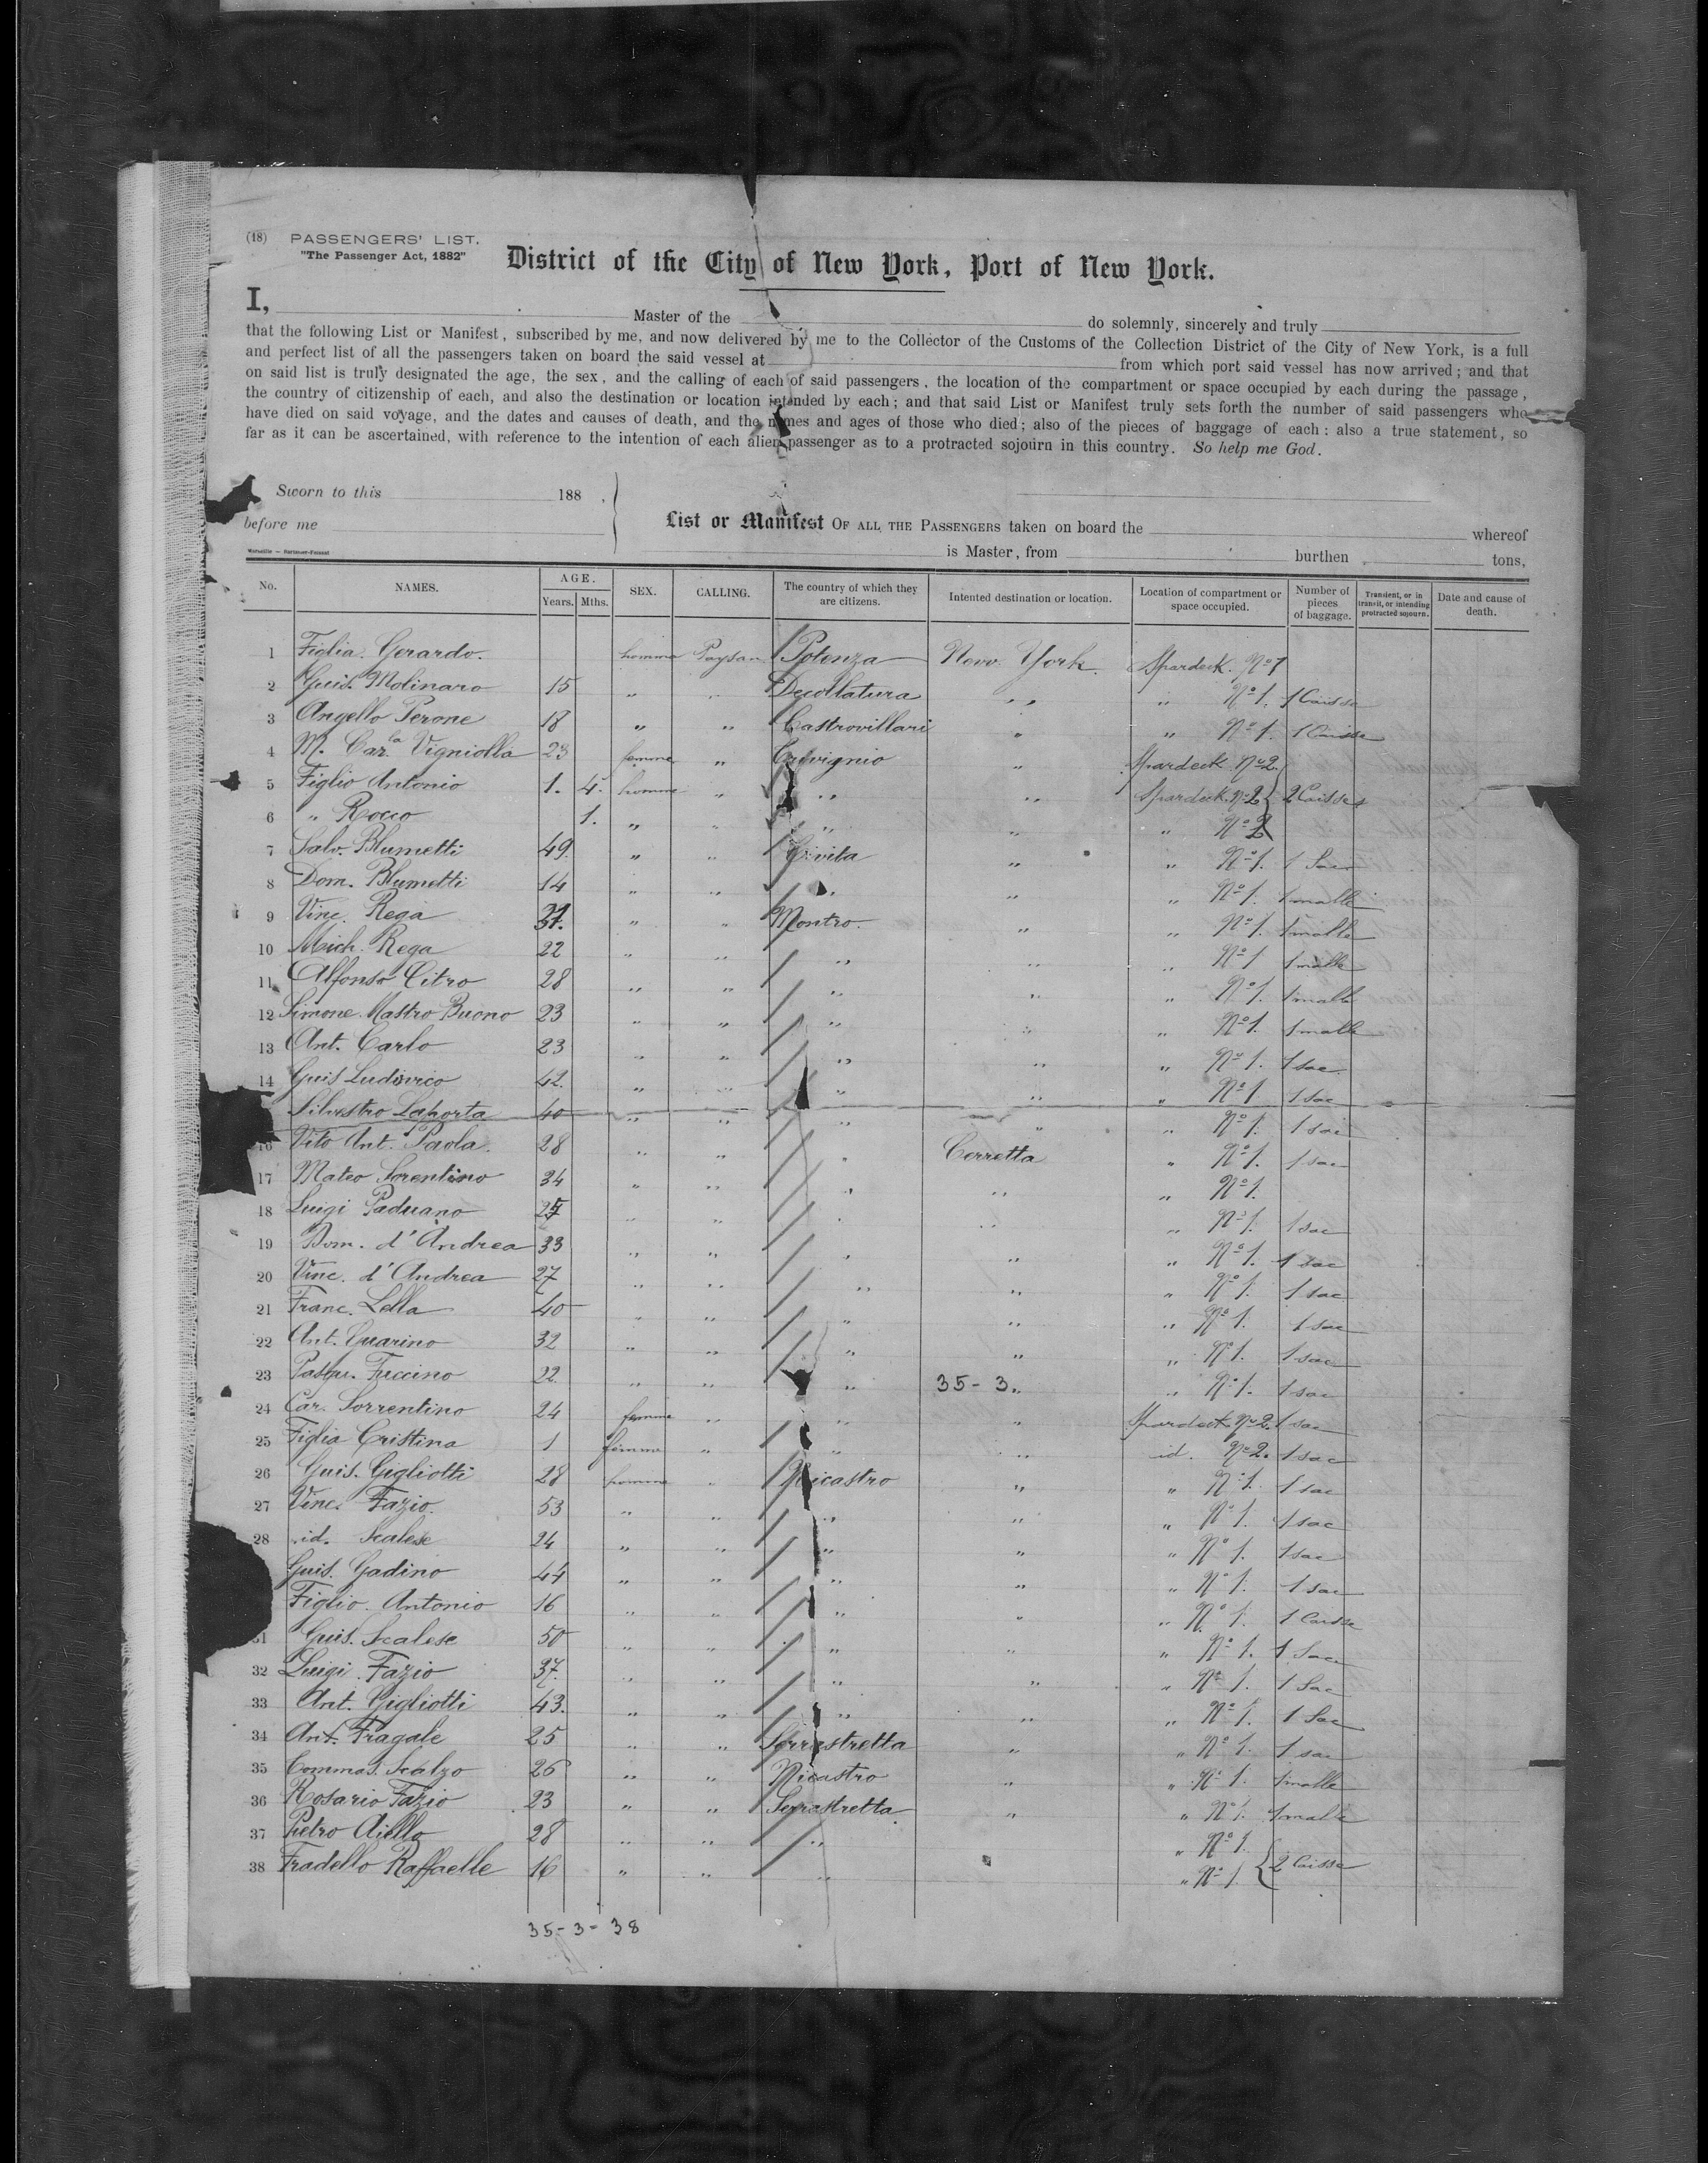 (18) PASSENGERS' LIST.
"The Passenger Act, 1882"
District of the City of New York, Port of New York.
I, Master of the do solemnly, sincerely and truly
that the following List or Manifest, subscribed by me, and now delivered by me to the Collector of the Customs of the Collection District of the City of New York, is a full
and perfect list of all the passengers taken on board the said vessel at from which port said vessel has now arrived; and that
on said list is truly designated the age, the sex, and the calling of each of said passengers, the location of the compartment or space occupied by each during the passage,
the country of citizenship of each, and also the destination or location intended by each; and that said List or Manifest truly sets forth the number of said passengers who
have died on said voyage, and the dates and causes of death, and the names and ages of those who died; also of the pieces of baggage of each: also a true statement, so
far as it can be ascertained, with reference to the intention of each alien passenger as to a protracted sojourn in this country. So help me God.
Sworn to this 188 .
before me
List or Manifest OF ALL THE PASSENGERS taken on board the whereof
is Master, from burthen tons,
No. NAMES. AGE. Years. Mths. SEX. CALLING. The country of which they are citizens. Intented destination or location. Location of compartment or space occupied. Number of pieces of baggage. Transient, or in transit, or intending protracted sojourn. Date and cause of death.
1 Figlia Gerardo. homme Paysan Potenza New York Spardeck. No 1
2 Guis. Molinaro 15 " " Decollatura " " No 1. 1 Caisse
3 Angello Perone 18 " " Castrovillari " " No 1. 1 Caisse
4 M. Carla Vigniolla 23 femme " Trivignio " Spardeck No 2.
5 Figlio Antonio 1. 4. homme " " " Spardeck No 2 2 Caisses
6 " Rocco 1. " " " " " No 2
7 Salv. Blumetti 49 " " Civita " " No 1. 1 Sac
8 Dom. Blumetti 14 " " " " " No 1. 1 malle
9 Vinc. Rega 31. " " Montro. " " No 1. 1 malle
10 Mich. Rega 22 " " " " " No 1 1 malle
11 Alfonso Citro 28 " " " " " No 1. 1 malle
12 Simone Mastro Buono 23 " " " " " No 1. 1 malle
13 Ant. Carlo 23 " " " " " No 1. 1 sac
14 Guis Ludovico 42. " " " " " No 1 1 sac
Silvestro Laporta 40 " " " " " No 1. 1 sac
16 Vito Ant. Paola. 28 " " " Cerretta " No 1. 1 sac
17 Mateo Sorentino 34 " " " " " No 1.
18 Luigi Paduano " " " " " No 1. 1 sac
19 Dom. d'Andrea 33 " " " " " No 1. 1 sac
20 Vinc. d'Andrea 27 " " " " " No 1. 1 sac
21 Franc. Lella 40 " " " " " No 1. 1 sac
22 Ant. Guarino 32 " " " " " No 1. 1 sac
23 Pasqu. Tuccino 22 " " " 35-3 " " No 1. 1 sac
24 Car. Sorrentino 24 femme " " " Spardeck No 2. 1 sac
25 Figlia Cristina 1 femme " " " id. No 2. 1 sac
26 Guis. Gigliotti 28 homme " Nicastro " " No 1. 1 sac
27 Vinc. Fazio. 53 " " " " " No 1. 1 sac
28 id. Scalese 24 " " " " " No 1. 1 sac
Guis. Gadino 44 " " " " " No 1. 1 sac
Figlio Antonio 16 " " " " " No 1. 1 Caisse
31 Guis. Scalese 50 " " " " " No 1. 1 Sac
32 Luigi Fazio 37. " " " " " No 1. 1 Sac
33 Ant. Gigliotti 43. " " " " " No 1. 1 Sac
34 Ant. Fragale 25 " " Serrastretta " " No 1. 1 sac
35 Commas. Scalzo 26 " " Nicastro " " No 1. 1 malle
36 Rosario Fazio 23 " " Serrastretta " " No 1. 1 malle
37 Pietro Aiello 28 " " " " No 1.
38 Fradello Raffaelle 16 " " " " No 1. 2 Caisse
35-3-38